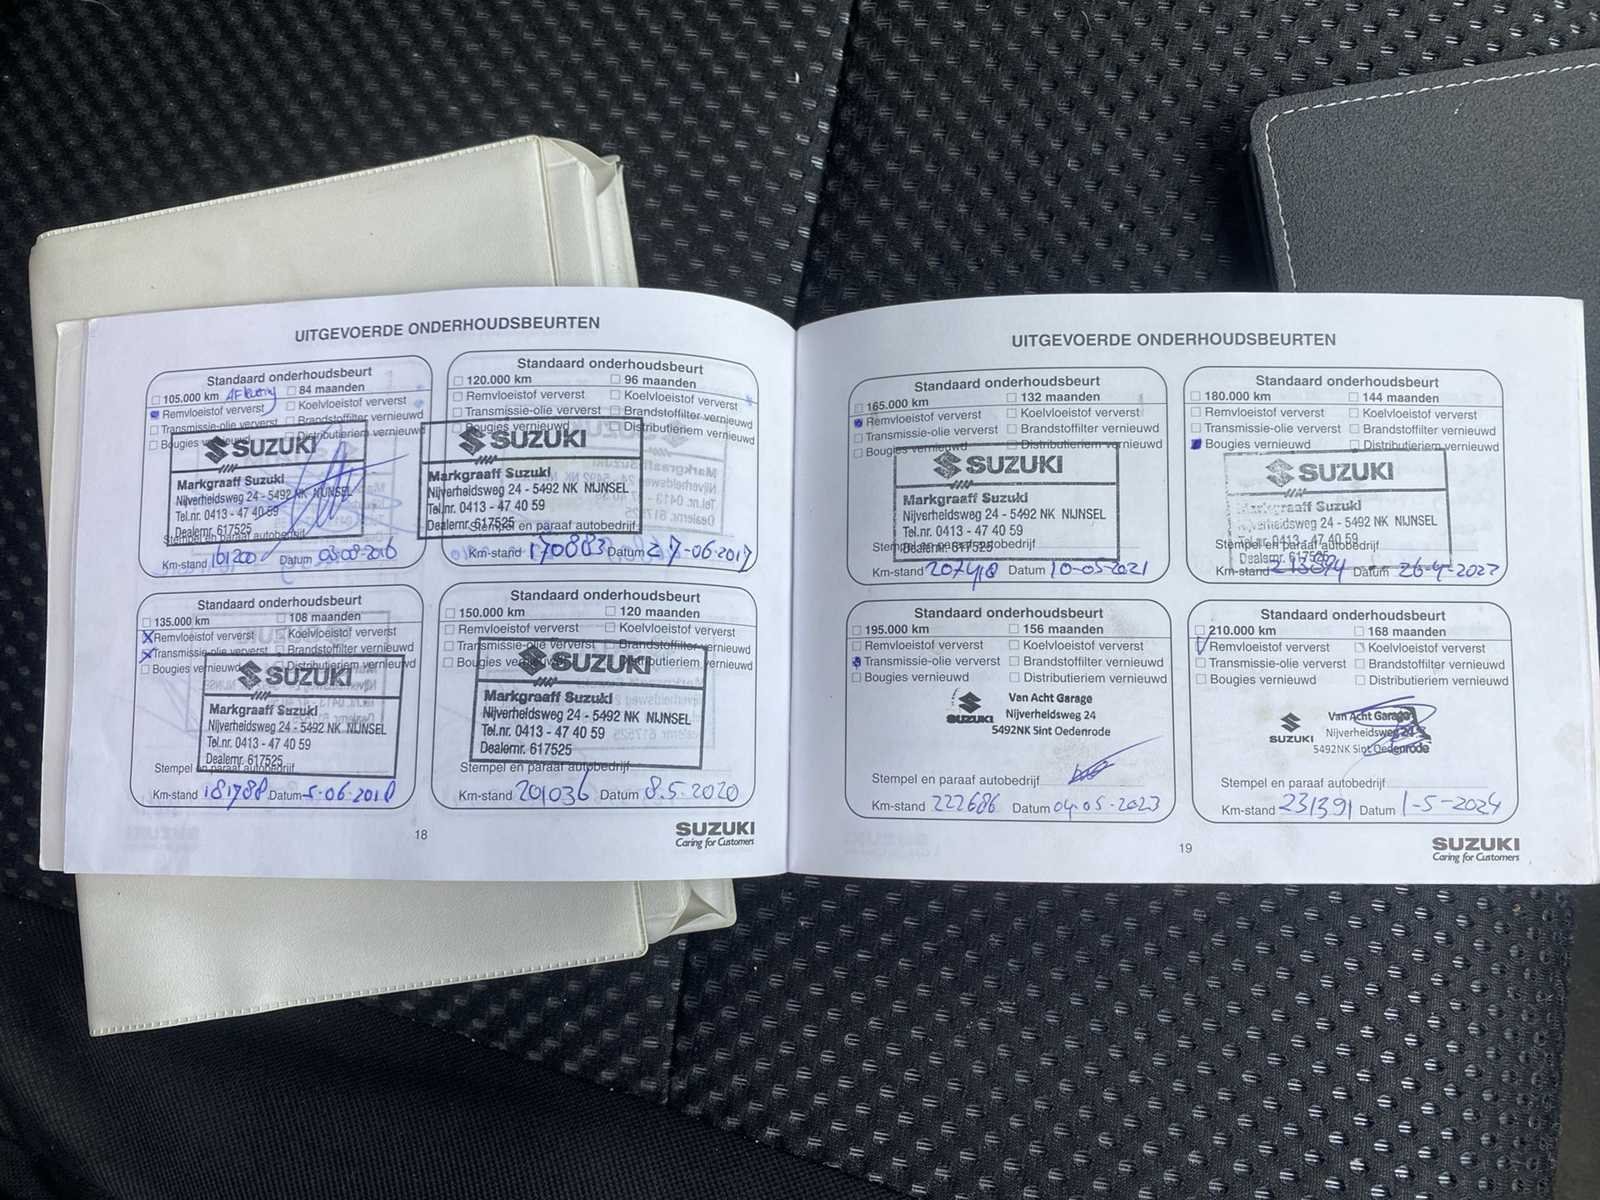 UITGEVOERDE ONDERHOUDSBEURTEN
Standaard onderhoudsbeurt
105.000 km
84 maanden
Remvloeistof ververst
Koelvloeistof ververst
Transmissie-olie ververst
Brandstoffilter vernieuwd
Bougies vernieuwd
Distributieriem vernieuwd
SUZUKI
Markgraaff Suzuki
Nijverheidsweg 24 - 5492 NK NIJNSEL
Tel.nr. 0413 - 47 40 59
Dealernr. 617525
Stempel en paraaf autobedrijf
Km-stand 161200 Datum 03-08-2016
Standaard onderhoudsbeurt
120.000 km
96 maanden
Remvloeistof ververst
Koelvloeistof ververst
Transmissie-olie ververst
Brandstoffilter vernieuwd
Bougies vernieuwd
Distributieriem vernieuwd
SUZUKI
Markgraaff Suzuki
Nijverheidsweg 24 - 5492 NK NIJNSEL
Tel.nr. 0413 - 47 40 59
Dealernr. 617525
Stempel en paraaf autobedrijf
Km-stand 170883 Datum 27-06-2017
Standaard onderhoudsbeurt
135.000 km
108 maanden
Remvloeistof ververst
Koelvloeistof ververst
Transmissie-olie ververst
Brandstoffilter vernieuwd
Bougies vernieuwd
Distributieriem vernieuwd
SUZUKI
Markgraaff Suzuki
Nijverheidsweg 24 - 5492 NK NIJNSEL
Tel.nr. 0413 - 47 40 59
Dealernr. 617525
Stempel en paraaf autobedrijf
Km-stand 181788 Datum 5-06-2018
Standaard onderhoudsbeurt
150.000 km
120 maanden
Remvloeistof ververst
Koelvloeistof ververst
Transmissie-olie ververst
Brandstoffilter vernieuwd
Bougies vernieuwd
Distributieriem vernieuwd
SUZUKI
Markgraaff Suzuki
Nijverheidsweg 24 - 5492 NK NIJNSEL
Tel.nr. 0413 - 47 40 59
Dealernr. 617525
Stempel en paraaf autobedrijf
Km-stand 201036 Datum 8.5.2020
18
SUZUKI
Caring for Customers
UITGEVOERDE ONDERHOUDSBEURTEN
Standaard onderhoudsbeurt
165.000 km
132 maanden
Remvloeistof ververst
Koelvloeistof ververst
Transmissie-olie ververst
Brandstoffilter vernieuwd
Bougies vernieuwd
Distributieriem vernieuwd
SUZUKI
Markgraaff Suzuki
Nijverheidsweg 24 - 5492 NK NIJNSEL
Tel.nr. 0413 - 47 40 59
Dealernr. 617525
Stempel en paraaf autobedrijf
Km-stand 207418 Datum 10-05-2021
Standaard onderhoudsbeurt
180.000 km
144 maanden
Remvloeistof ververst
Koelvloeistof ververst
Transmissie-olie ververst
Brandstoffilter vernieuwd
Bougies vernieuwd
Distributieriem vernieuwd
SUZUKI
Markgraaff Suzuki
Nijverheidsweg 24 - 5492 NK NIJNSEL
Tel.nr. 0413 - 47 40 59
Dealernr. 617525
Stempel en paraaf autobedrijf
Km-stand 213894 Datum 26-4-2022
Standaard onderhoudsbeurt
195.000 km
156 maanden
Remvloeistof ververst
Koelvloeistof ververst
Transmissie-olie ververst
Brandstoffilter vernieuwd
Bougies vernieuwd
Distributieriem vernieuwd
SUZUKI
Van Acht Garage
Nijverheidsweg 24
5492NK Sint Oedenrode
Stempel en paraaf autobedrijf
Km-stand 222686 Datum 04-05-2023
Standaard onderhoudsbeurt
210.000 km
168 maanden
Remvloeistof ververst
Koelvloeistof ververst
Transmissie-olie ververst
Brandstoffilter vernieuwd
Bougies vernieuwd
Distributieriem vernieuwd
SUZUKI
Van Acht Garage
Nijverheidsweg 24
5492NK Sint Oedenrode
Stempel en paraaf autobedrijf
Km-stand 231391 Datum 1-5-2024
19
SUZUKI
Caring for Customers